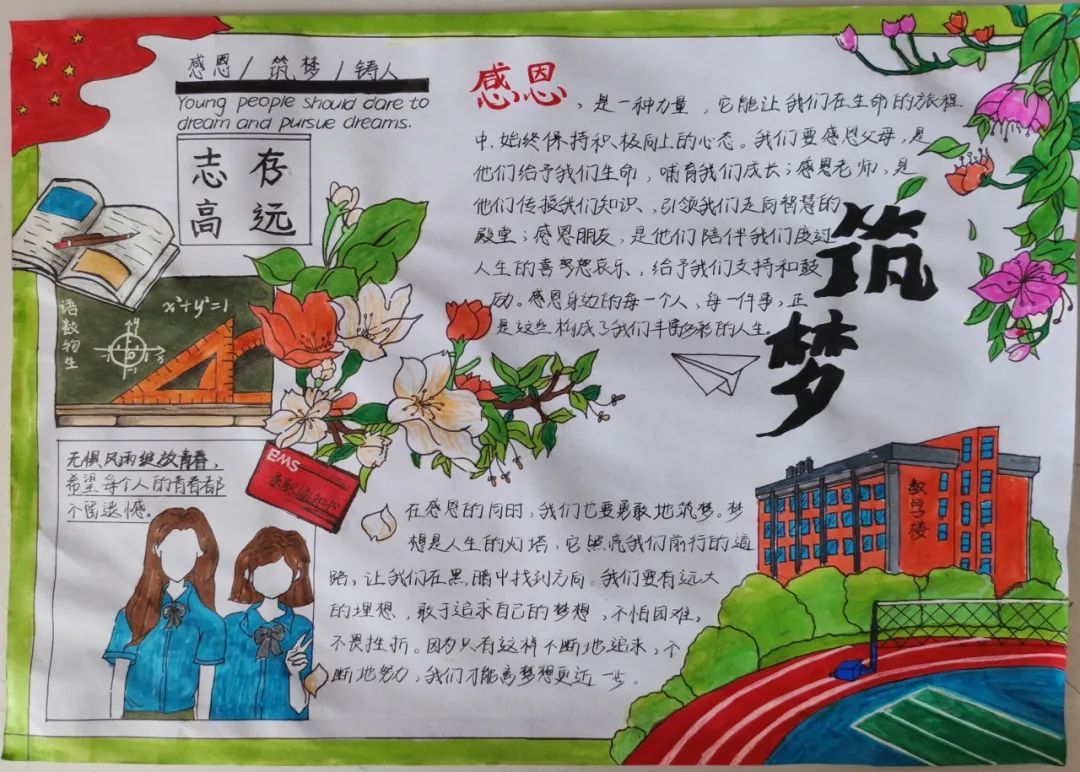 感恩/筑梦/铸人
Young people should dare to
dream and pursue dreams.
志存
高远
语数物生
x²+y²=1
y
x
无惧风雨绽放青春，
希望每个人的青春都
不留遗憾。
EMS
录取通知书
感恩，是一种力量，它能让我们在生命的旅程
中，始终保持积极向上的心态。我们要感恩父母，是
他们给予我们生命，哺育我们成长；感恩老师，是
他们传授我们知识，引领我们走向智慧的
殿堂；感恩朋友，是他们陪伴我们度过
人生的喜怒哀乐，给予我们支持和鼓
励。感恩身边的每一个人，每一件事，正
是这些构成了我们丰富多彩的人生。
筑
梦
在感恩的同时，我们也要勇敢地筑梦。梦
想是人生的灯塔，它照亮我们前行的道
路，让我们在黑暗中找到方向。我们要有远大
的理想，敢于追求自己的梦想，不怕困难，
不畏挫折。因为只有这样不断地追求，不
断地努力，我们才能离梦想更近一步。
教学楼